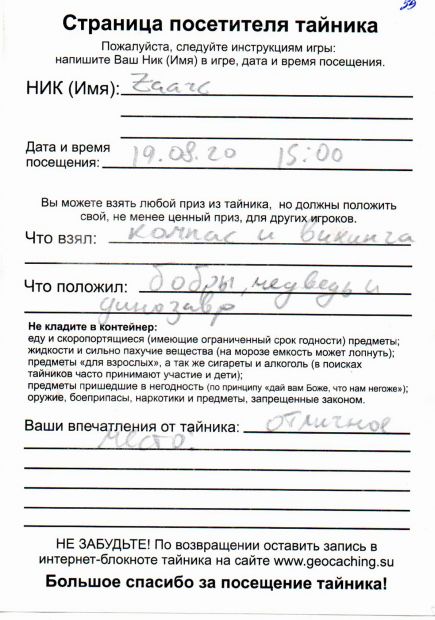 Страница посетителя тайника
Пожалуйста, следуйте инструкциям игры:
напишите Ваш Ник (Имя) в игре, дата и время посещения.
НИК (Имя): Zaarc
Дата и время
посещения: 19.09.20 15:00
Вы можете взять любой приз из тайника, но должны положить
свой, не менее ценный приз, для других игроков.
Что взял: компас и викинга
Что положил: бобры, медведь и
динозавр
Не кладите в контейнер:
еду и скоропортящиеся (имеющие ограниченный срок годности) предметы;
жидкости и сильно пахучие вещества (на морозе емкость может лопнуть);
предметы «для взрослых», а так же сигареты и алкоголь (в поисках
тайников часто принимают участие и дети);
предметы пришедшие в негодность (по принципу «дай вам Боже, что нам негоже»);
оружие, боеприпасы, наркотики и предметы, запрещенные законом.
Ваши впечатления от тайника: отличное
место.
НЕ ЗАБУДЬТЕ! По возвращении оставить запись в
интернет-блокноте тайника на сайте www.geocaching.su
Большое спасибо за посещение тайника!